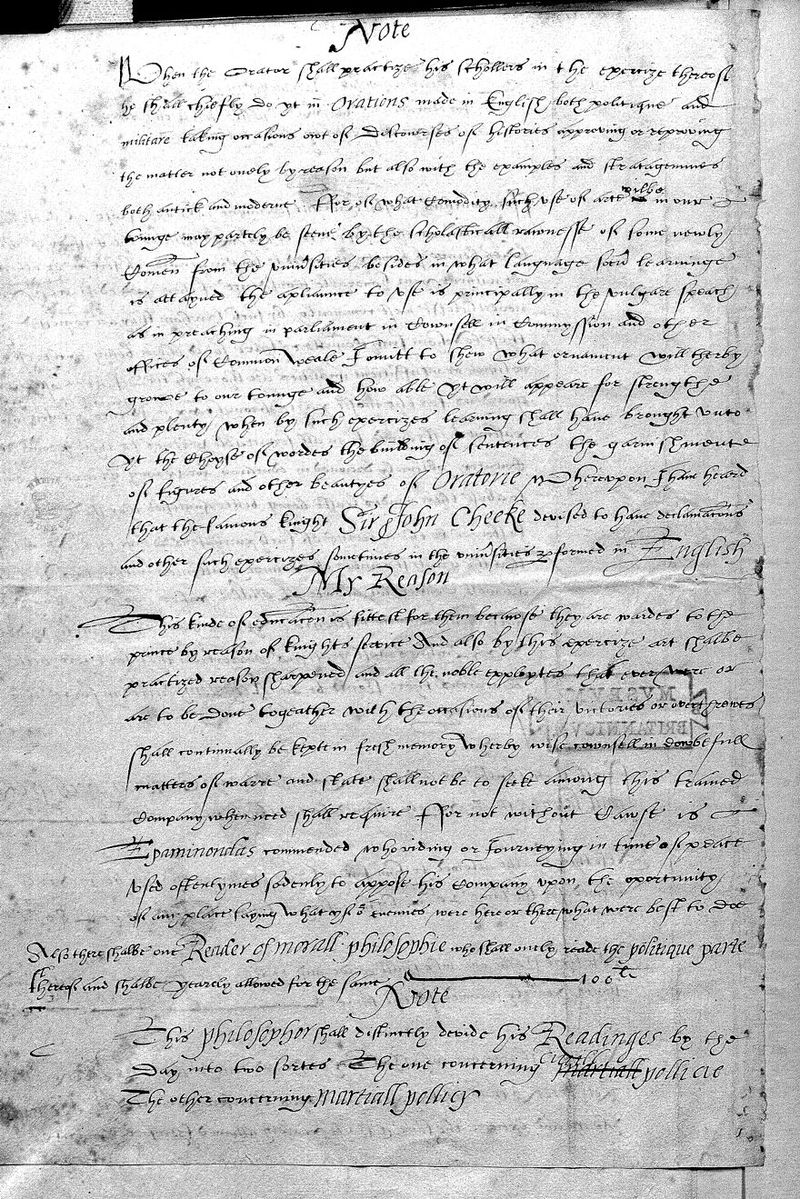 Note
When the Orator shall practize his schollers in the exercize thereof
he shall chiefly do yt in Orations made in English, both politique and
militare taking occasions owt of discourses of histories approving or reproving
the matter not onely by reason but also with the examples and stratagemmes
both antick and moderne ffor of what comodity such use of arte wilbe in our
tounge may partly be seene by the scholasticall rawnesse of some newly
comen from the universities besides in what language soever learninge
is attayned the apliaunce to use is principally in the vulgare speach
as in preaching in parliament in Cownsell in Commyssion and other
offices of Common Weale I omitt to shew what ornament will therby
growe to our tounge and how able yt will appeare for strengthe
and plenty when by such exercizes learning shall have brought unto
yt the Choyse of wordes the building of sentences the garnishmente
of figures and other beautyes of Oratorie Wherupon I have heard
that the famous knight Sir John Cheeke devised to have declamations
and other such exercizes sometimes in the universities performed in English
My Reason
This kinde of education is fittest for them because they are wardes to the
prince by reason of knights service And also by this exercize art shalbe
practized reason sharpened and all the noble exploytes that ever were or
are to be done togeather with the occasions of their victories or overthrowes
shall continually be kepte in fresh memory Wherby wise cownsell in dowbtfull
matters of warre and state shall not be to seek among this trained
Company when need shall require ffor not without Cawse is
Epaminondas commended who riding or Journeying in time of peace
used oftentymes sodenly to appose his Company upon the oportunity
of any place saying What yf our enemies were here or there what were best to doe
Also there shalbe one Reader of morall philosophie who shall onely reade the politique parte
thereof and shalbe yearly allowed for the same 100li
Note
This philosopher shall distinctly devide his Readinges by the
Day into two sortes The one concerning Civill martiall pollicie
The other concerning martiall pollicy
MVSEVM
BRITANNICVM